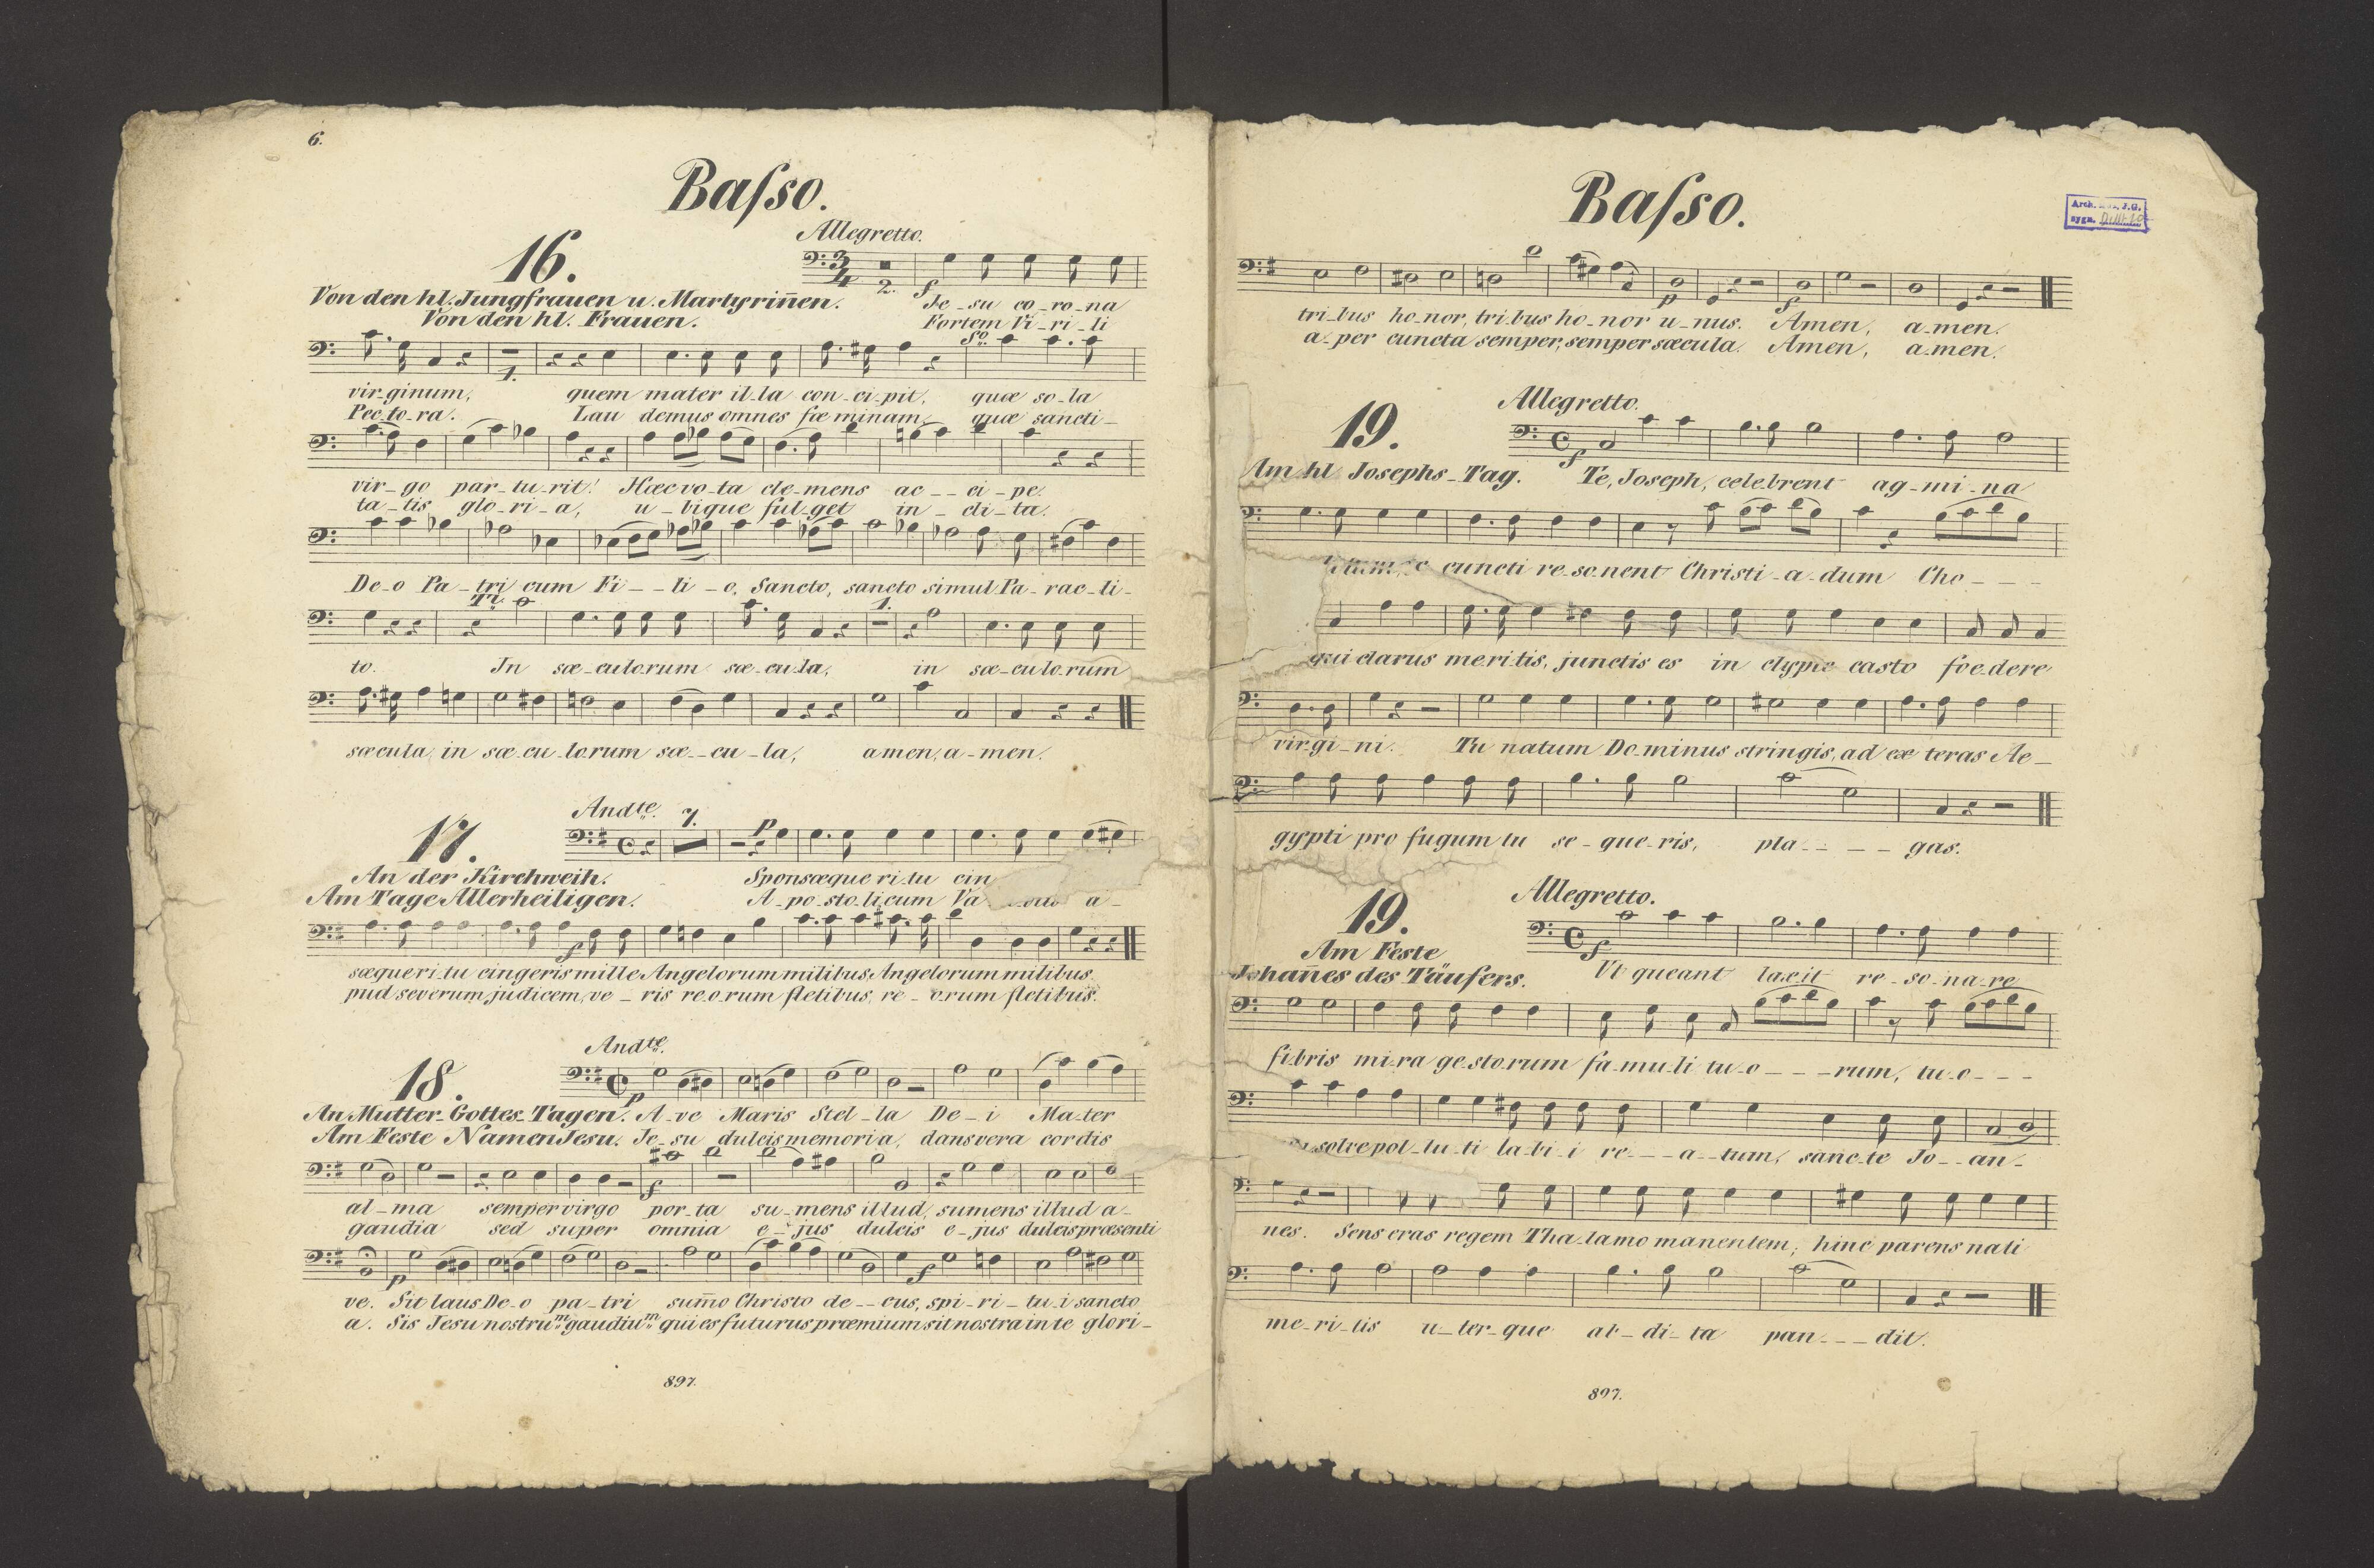 6.
Baſso.
16.
Allegretto.
2. f
Von den hl. Jungfrauen u. Martyrin̄en.
Von den hl. Frauen.
Je_su co_ro_na
Fortem Vi_ri_li
So.
1.
vir_ginum, quem mater il_la con_ci_pit, quæ so_la
Pec_to_ra. Lau demus omnes fœ minam, quæ sancti_
vir_go par_tu_rit! Hæc vo_ta cle_mens ac__ci_pe.
ta_tis glo_ri_a, u_bique ful_get in_cli_ta.
De_o Pa_tri cum Fi__li_o, Sancto, sancto simul Pa_rac_li_
1.
to. In sæ_culo.rum sæ_cu.la, in sæ_cu.lo.rum
sæcula, in sæ_cu_lo.rum sæ__cu_la, amen, a_men.
17.
Andte.
7. p
An der Kirchweih.
Am Tage Allerheiligen.
Sponsæque ri.tu cin
A_po_sto_li.cum Va a_
f
sæque ri_tu cingeris mille Angelorum militibus, Angelorum militibus.
pud severum judicem, ve_ris re.o.rum fletibus, re_o.rum fletibus.
18.
Andte.
p
An Mutter_Gottes_Tagen. A_ve Maris Stel_la De_i Ma_ter
Am Feste Namen Jesu. Je_su dulcis memori a, dans vera cordis
f
al_ma semper virgo por_ta su_mens illud, sumens illud a_
gaudia sed super omnia e_jus dulcis e_jus dulcis præsenti
p f
ve. Sit laus De_o pa_tri sum̄o Christo de__cus, spi_ri_tu_i sancto
a. Sis Jesu nostrum gaudium qui es futurus præmium sit nostra in te glori_
897.
Baſso.
Arch. J.G.
sygn.
p f
tri_bus ho_nor, tri_bus ho_nor u_nus. Amen, a_men.
a_per cuncta semper, semper sæcula. Amen, a.men.
19.
Allegretto.
f
Am hl Josephs_Tag. Te, Joseph, cele.brent ag_mi_na
cuncti re_so.nent Christi_a_dum Cho____
qui clarus me.ri.tis, junctis es in casto foe_dere
vir.gi_ni. Tu natum Do_minus stringis, ad ex teras Ae_
gypti pro fugum tu se_que_ris, pla____gas.
19.
Allegretto.
f
Am Feste
Johan̄es des Täufers.
Ut queant lax.it re_so_na_re
fi.bris mi.ra ge.sto.rum fa_mu.li tu_o___rum, tu_o___
solve pol_lu_ti la_bi_i re___a_tum, sanc.te Jo__an_
nes. Sens eras regem Tha_lamo manentem; hinc parens nati
me_ri_tis u_ter_que ab_di_ta pan___dit.
897.